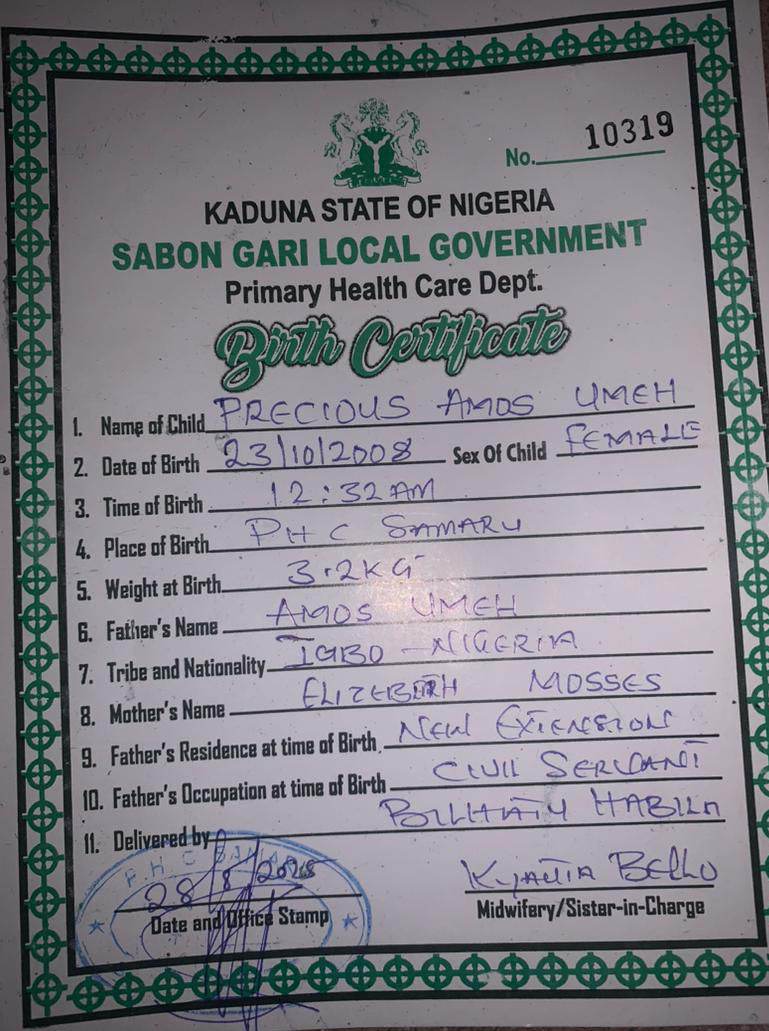 No. 10319
KADUNA STATE OF NIGERIA
SABON GARI LOCAL GOVERNMENT
Primary Health Care Dept.
Birth Certificate
1. Name of Child PRECIOUS AMOS UMEH
2. Date of Birth 23/10/2008 Sex Of Child FEMALE
3. Time of Birth 12:32 AM
4. Place of Birth PHC SAMARU
5. Weight at Birth 3.2KG
6. Father's Name AMOS UMEH
7. Tribe and Nationality IGBO - NIGERIA
8. Mother's Name ELIZEBETH MOSSES
9. Father's Residence at time of Birth NEW EXTENSION
10. Father's Occupation at time of Birth CIVIL SERVANT
11. Delivered by HABILA
P H C SAMARU
28/8/2025 BELLO
Date and Office Stamp Midwifery/Sister-in-Charge